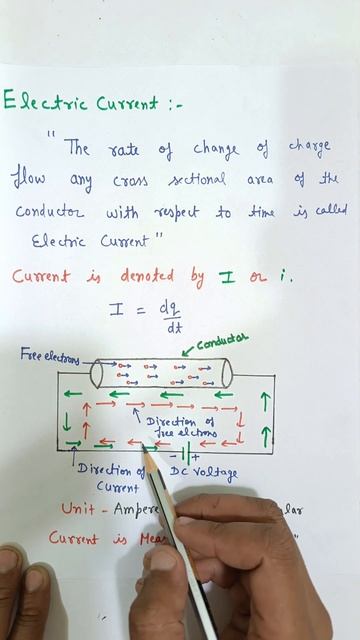 Electric Current :-
" The rate of change of charge
flow any cross sectional area of the
conductor with respect to time is called
Electric Current "
Current is denoted by I or i.
I = dq/dt
Conductor
Free electrons
Direction of
free elctrons
- +
Direction of
Current
DC Voltage
Unit - Ampere
Current is Meas
"